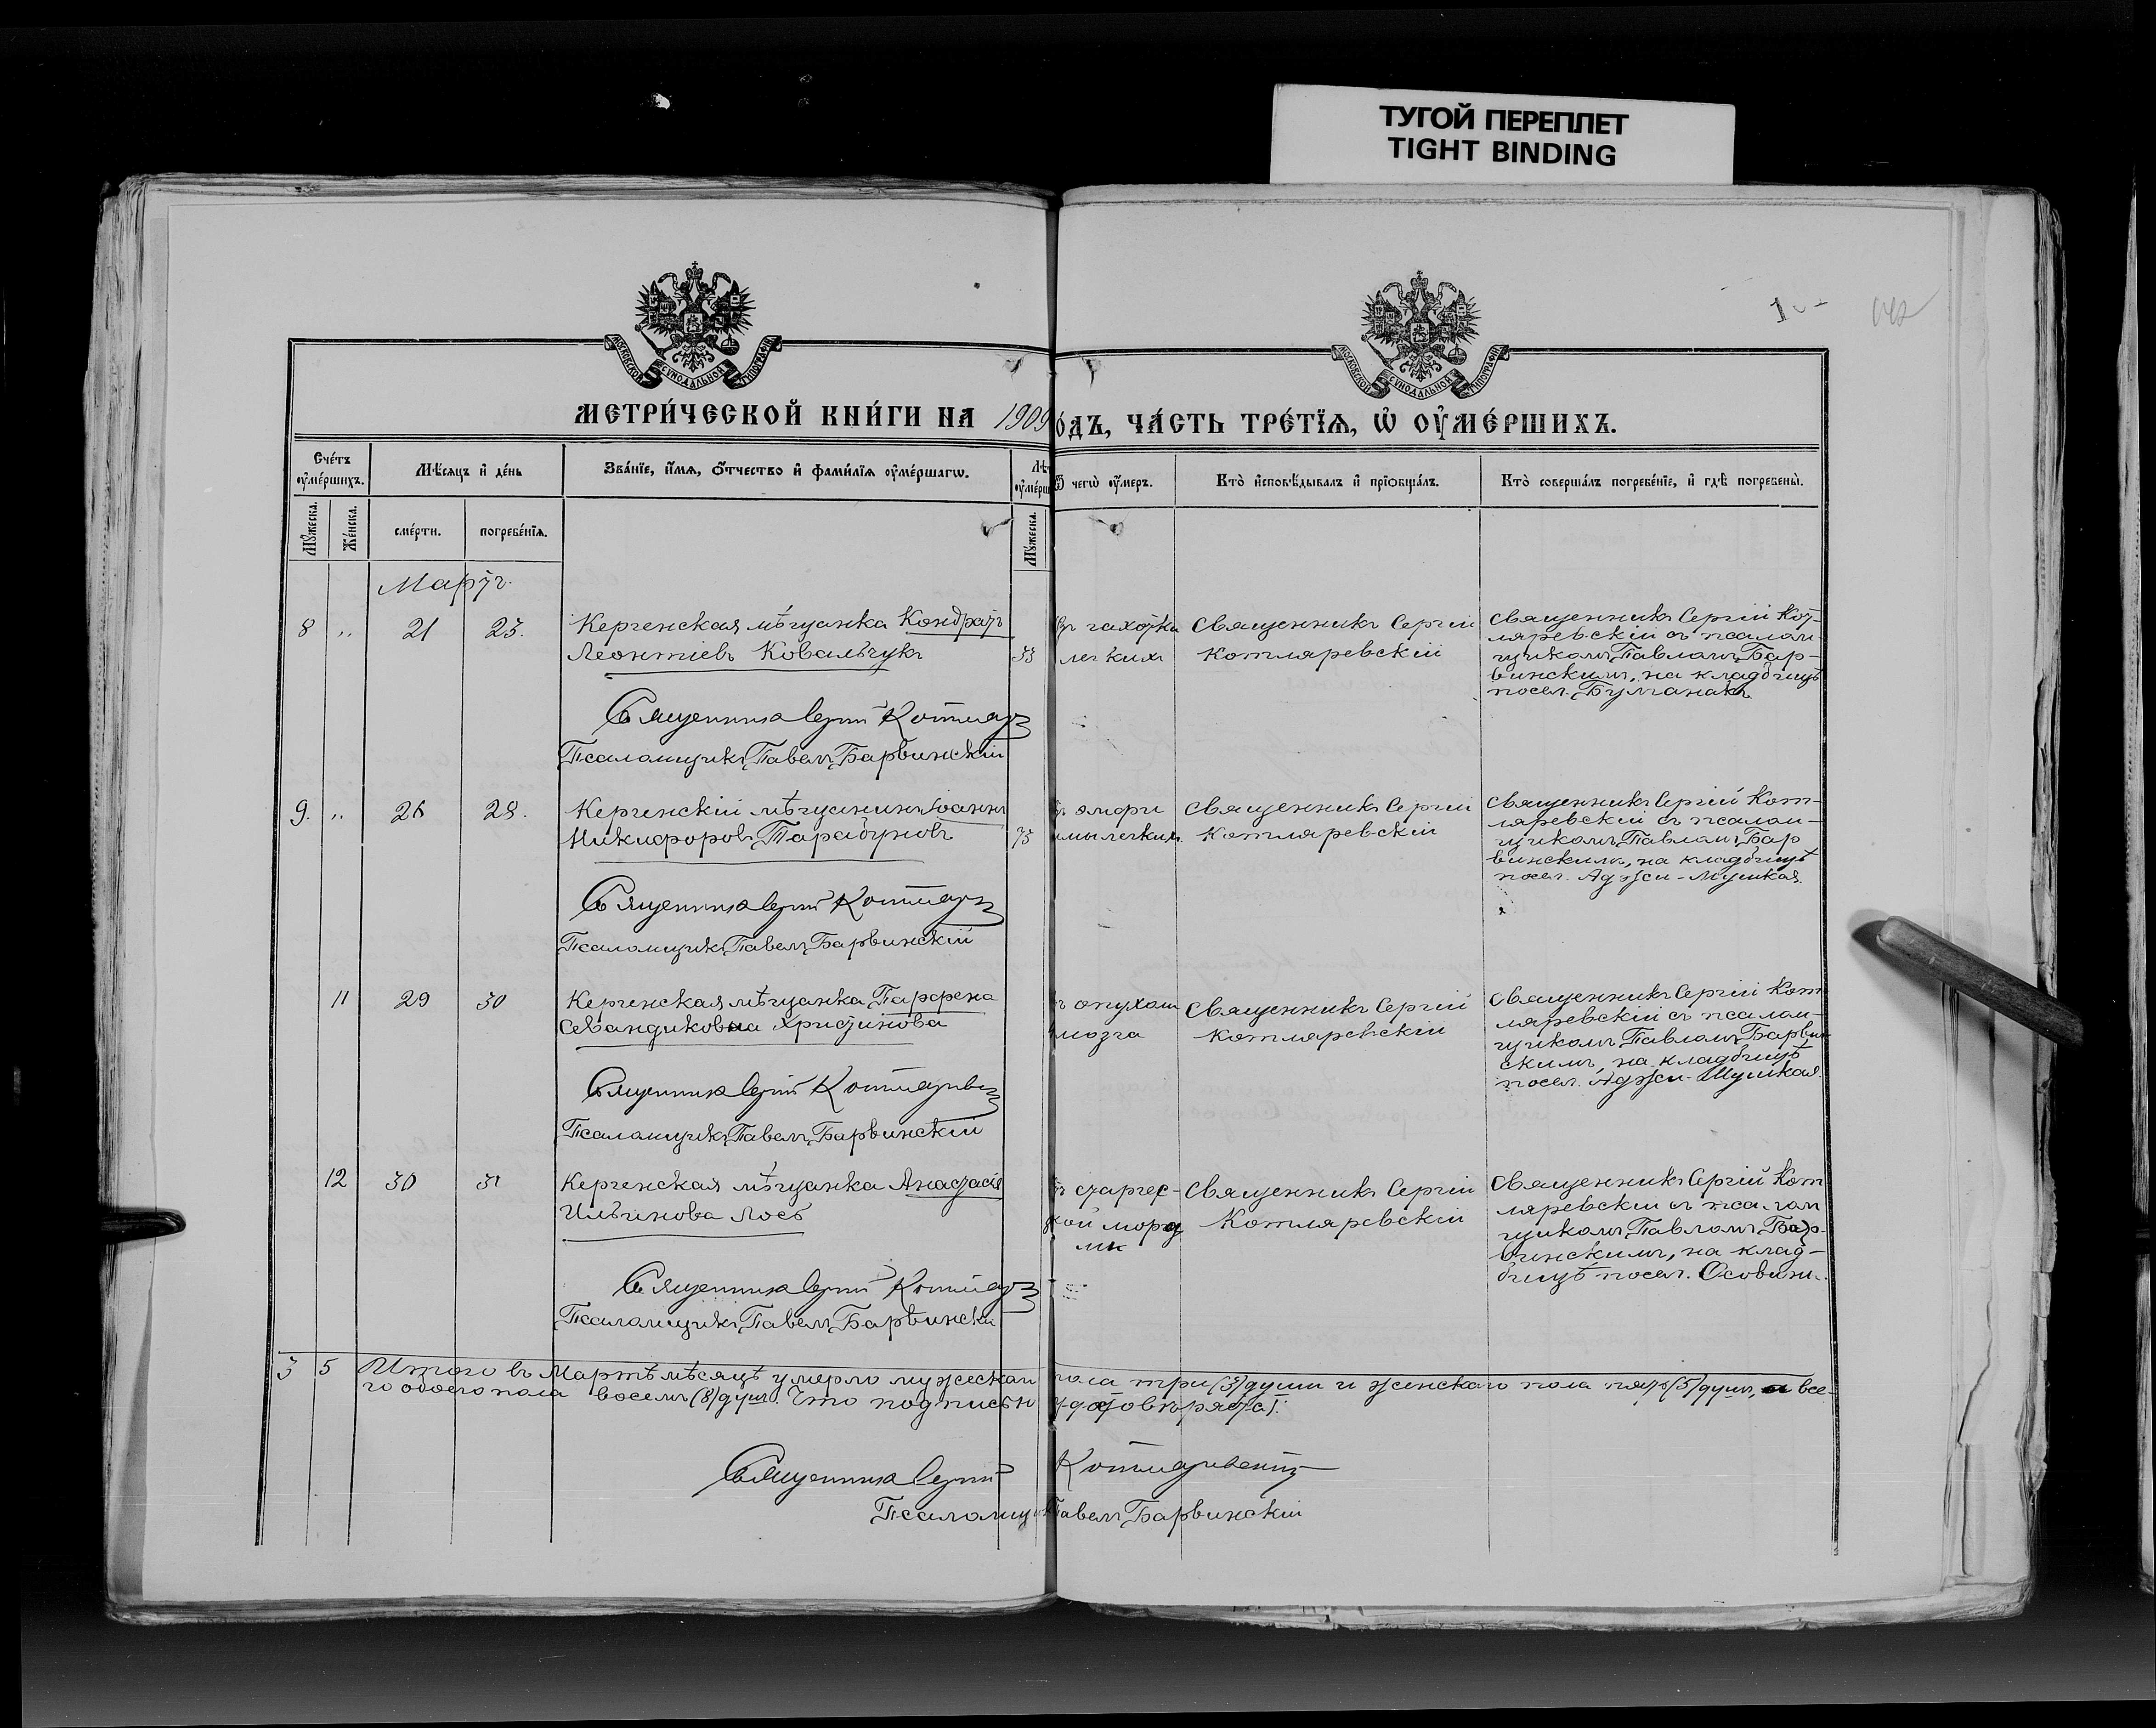 ТУГОЙ ПЕРЕПЛЕТ
TIGHT BINDING
МОСКОВСКОЙ СѴНОДАЛЬНОЙ ТИПОГРАФІИ
МОСКОВСКОЙ СѴНОДАЛЬНОЙ ТИПОГРАФІИ
МЕТРИ́ЧЕСКОЙ КНИ́ГИ НА 1909
О́ДЪ, ЧА́СТЬ ТРЕ́ТЇѦ, Ѡ҆ ОУ҆МЕ́РШИХЪ.
Сче́тъ оу҆ме́ршихъ.
Мѣ́сяцъ и҆ де́нь
Зва́нїе, и҆́мѧ, ѻ҆́тчество и҆ фами́лїѧ оу҆ме́ршагѡ.
Лѣ́
оу҆ме́рш
Ѿ чегѡ̀ оу҆́меръ.
Кто̀ и҆сповѣ́дывалъ и҆ прїѻбща́лъ.
Кто̀ соверша́лъ погребе́нїе, и҆ гдѣ̀ погребены̀.
Мꙋ́жеска.
Же́нска.
сме́рти.
погребе́нїѧ.
Мꙋ́жеска.
Мартъ.
8 " 21 23. Керченская мѣщанка Кондратъ
Леонтіевъ Ковальчукъ 53
чахотки
легкихъ
Священникъ Сергій
Котляревскій
Священникъ Сергій Кот-
ляревскій съ псалом-
щикомъ Павломъ Бар-
винскимъ, на кладбищѣ
посел. Булганакъ
Священникъ Сергій
Псаломщикъ Павелъ Барвинскій
9. " 26 28. Керченскій мѣщанинъ Іоаннъ
Никифоровъ Тарабуновъ 75
легкихъ.
Священникъ Сергій
Котляревскій
Священникъ Сергій Кот-
ляревскій съ псалом-
щикомъ Павломъ Бар
винскимъ, на кладбищѣ
посел. Аджи-Мушкай.
Священникъ Сергій
Псаломщикъ Павелъ Барвинскій
11 29 30 Керченская мѣщанка
Христинова
опухоли
мозга
Священникъ Сергій
Котляревскій
Священникъ Сергій Кот
ляревскій съ псалом-
щикомъ Павломъ Барвин
скимъ, на кладбищѣ
посел. Аджи-Мушкай.
Священникъ Сергій
Псаломщикъ Павелъ Барвинскій
12 30 31 Керченская мѣщанка Анастасія
Ильинова Лось
старчес-
кой
Священникъ Сергій
Котляревскій
Священникъ Сергій Кот
ляревскій съ псалом
щикомъ Павломъ Бар-
винскимъ, на клад-
бищѣ посел. Осовины.
Священникъ Сергій
Псаломщикъ Павелъ Барвинскій
3 5 Итого въ Мартѣ мѣсяцѣ умерло мужескаго
пола три (3) души и женскаго пола пять (5) душъ, а все-
го обоего пола восемь (8) душъ. Что подписью
удостовѣряется:
Священникъ Сергій Котляревскій
Псаломщикъ Павелъ Барвинскій